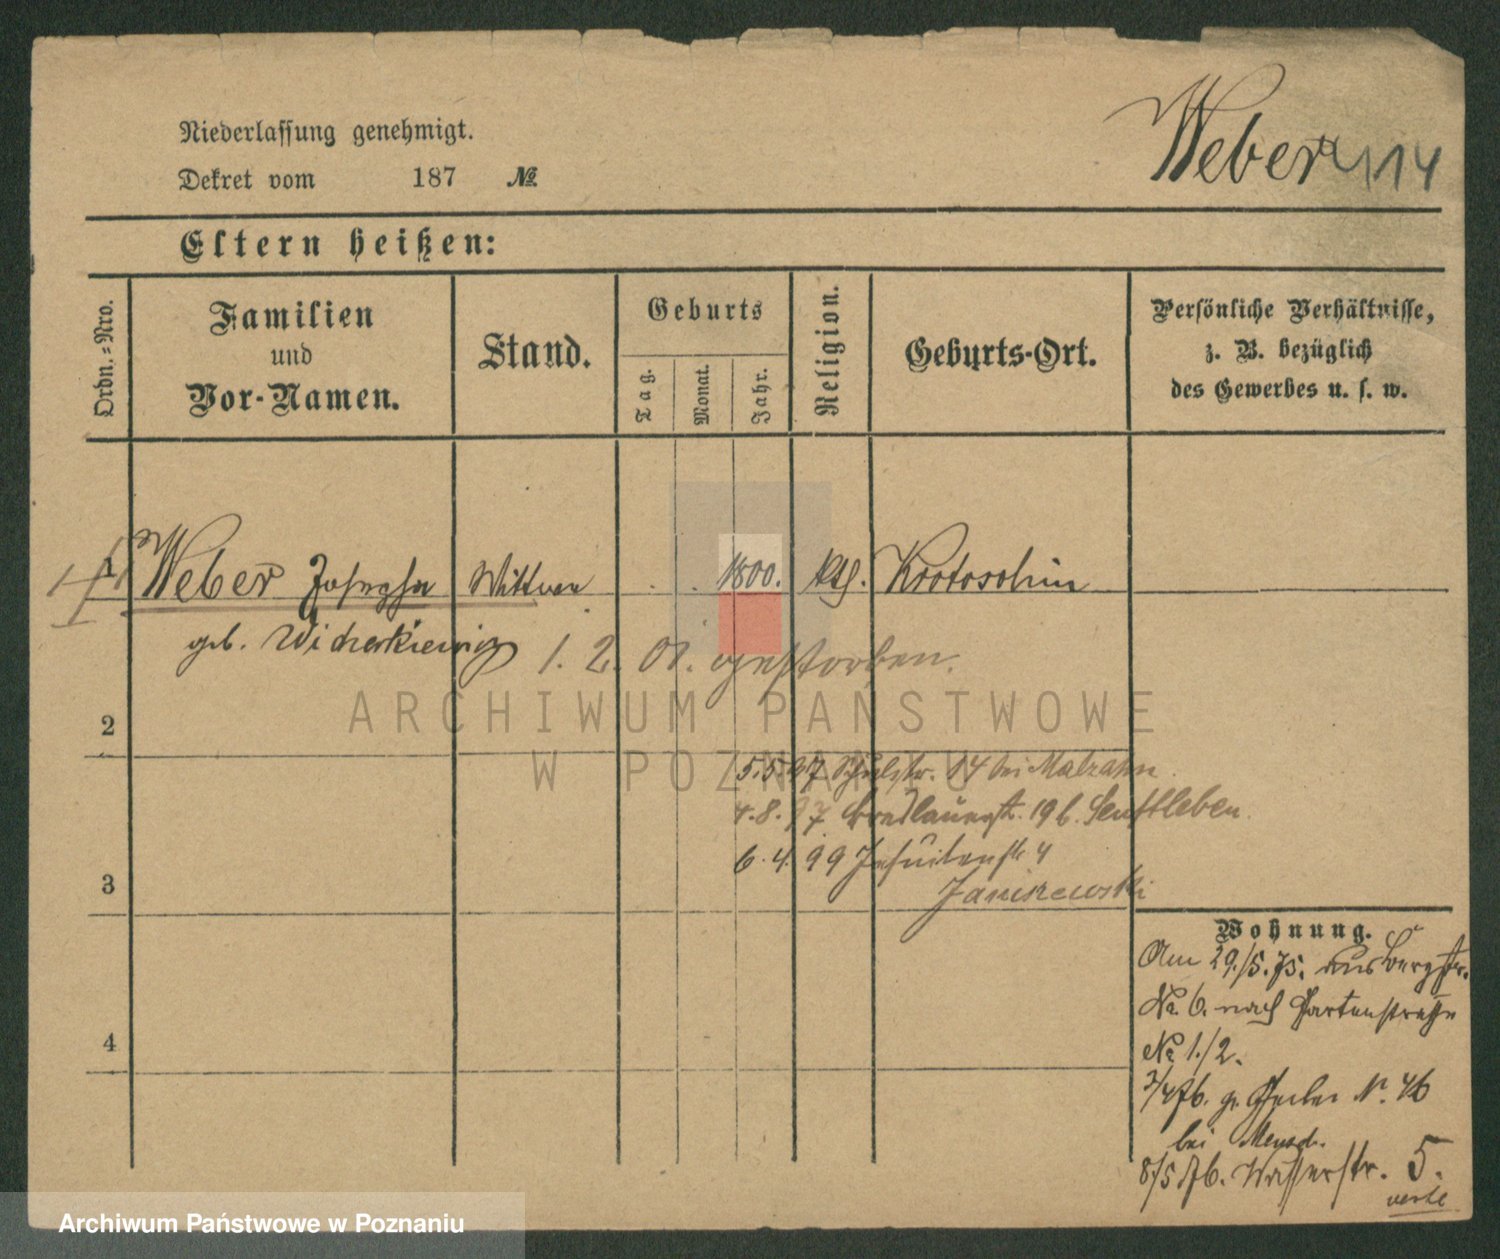 Weber 114
Niederlassung genehmigt.
Dekret vom 187 №
Eltern heißen:
Ordn.=Nro.
Familien
und
Vor-Namen.
Stand.
Geburts
Tag.
Monat.
Jahr.
Religion.
Geburts-Ort.
Persönliche Verhältnisse,
z. B. bezüglich
des Gewerbes u. s. w.
1 Weber Josepha Wittwe 1800. kth. Krotoschin
geb. Wicherkiewicz 1. 2. 01. gestorben.
ARCHIWUM PAŃSTWOWE
W POZNANIU
2
5.5.97 Schulstr. 14 bei Malzahn
4.8.97 Breslauerstr. 19 b. Senftleben.
6.4.99 Jesuitenstr 4
Janiszewski
3
Wohnung.
Am 29./5.75. aus Bergstr.
No. 6. nach Gartenstrasse
No 1./2.
4
N. 46
bei
8/5 76. Wasserstr. 5.
verte
Archiwum Państwowe w Poznaniu